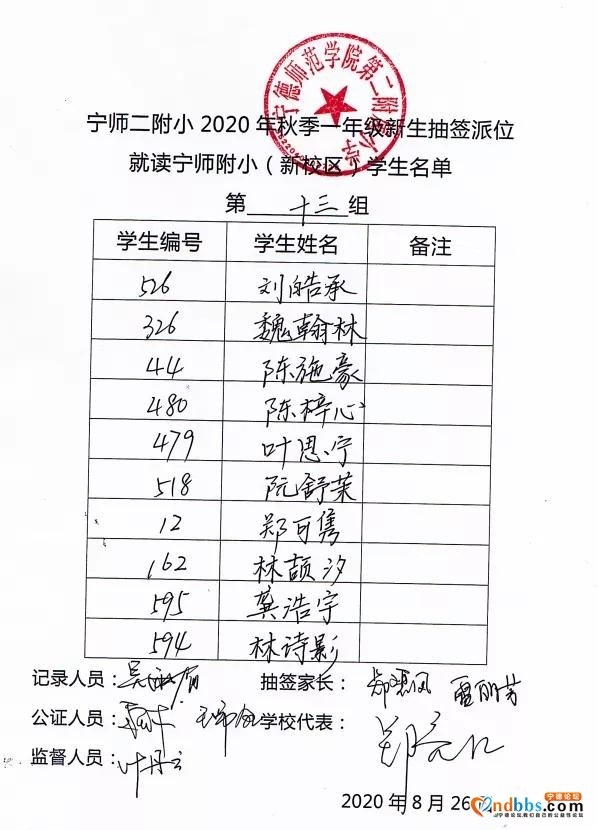 宁德师范学院第二附属小学
宁师二附小 2020 年秋季一年级新生抽签派位
就读宁师附小（新校区）学生名单
第 十三 组
学生编号 学生姓名 备注
526 刘皓承
326 魏翰林
44 陈施豪
480 陈梓心
479 叶思宁
518 阮舒茉
12 郑可隽
162 林颉汐
595 龚浩宇
594 林诗影
记录人员： 抽签家长：
公证人员： 学校代表：
监督人员： 叶丹云
2020 年 8 月 26
宁德论坛
ndbbs.com
宁德论坛,我们自己的公益性论坛